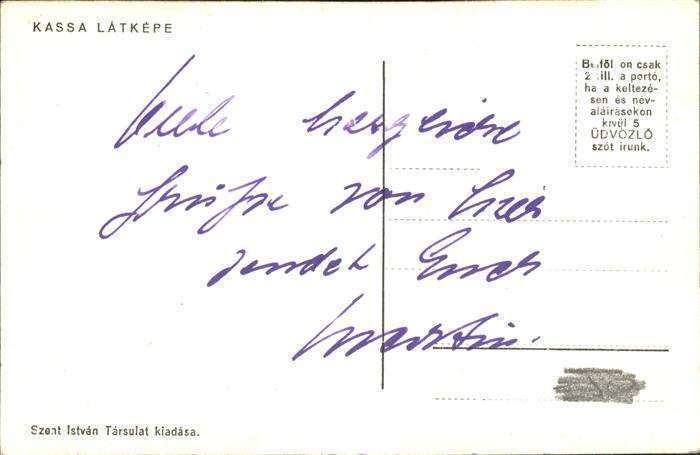 KASSA LÁTKÉPE
Belföl on csak
2 fill. a portó,
ha a keltezé-
sen és név-
aláírásokon
kívül 5
ÜDVÖZLŐ
szót írunk.
Viele herzliche
Grüße von hier
sendet Euch
Martin.
Szent István Társulat kiadása.